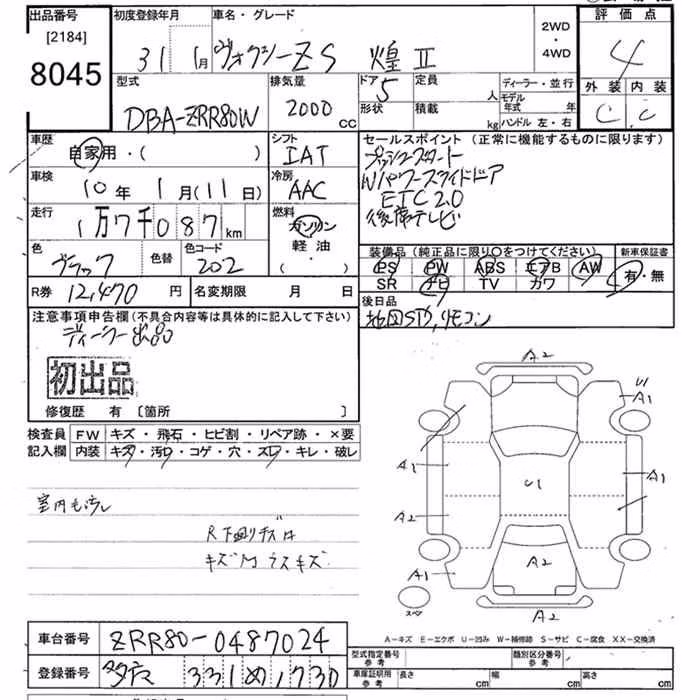 出品番号
[2184]
8045
初度登録年月
31 1月
車名・グレード
ヴォクシーZS 煌 Ⅱ
2WD
・
4WD
評価点
4
外装 内装
C C
型式
DBA-ZRR80W
排気量
2000 CC
ドア
5
定員
人
形状
積載
kg
ディーラー・並行
モデル年式 年
ハンドル 左・右
車歴
自家用・( )
シフト
IAT
車検
10年 1月(11日)
冷房
AAC
走行
1万7千087km
燃料
ガソリン
軽油・
( )
色
ブラック
色替
色コード
202
セールスポイント (正常に機能するものに限ります)
プッシュスタート
Wパワースライドドア
ETC2.0
後席テレビ
装備品(純正品に限り○をつけてください)
PS PW ABS エアB AW
SR ナビ TV カワ
新車保証書
有・無
R券 12,470円
名変期限 月 日
後日品
地図SD,リモコン
注意事項申告欄(不具合内容等は具体的に記入して下さい)
ディーラー出品
初出品
修復歴 有 〔箇所 〕
検査員
記入欄
FW キズ・飛石・ヒビ割・リペア跡・×要
内装 キズ・汚レ・コゲ・穴・スレ・キレ・破レ
室内
R下廻りキズ
キズ
A2
A1
U1
A1
A1
A2
U1
A2
A1
A2
スペア
A-キズ E-エクボ U-凹み W-補修跡 S-サビ C-腐食 XX-交換済
車台番号
ZRR80-0487024
登録番号
331 め 1730
型式指定番号
参考
類別区分番号
参考
車庫証明用
参考
長さ cm
幅 cm
高さ cm